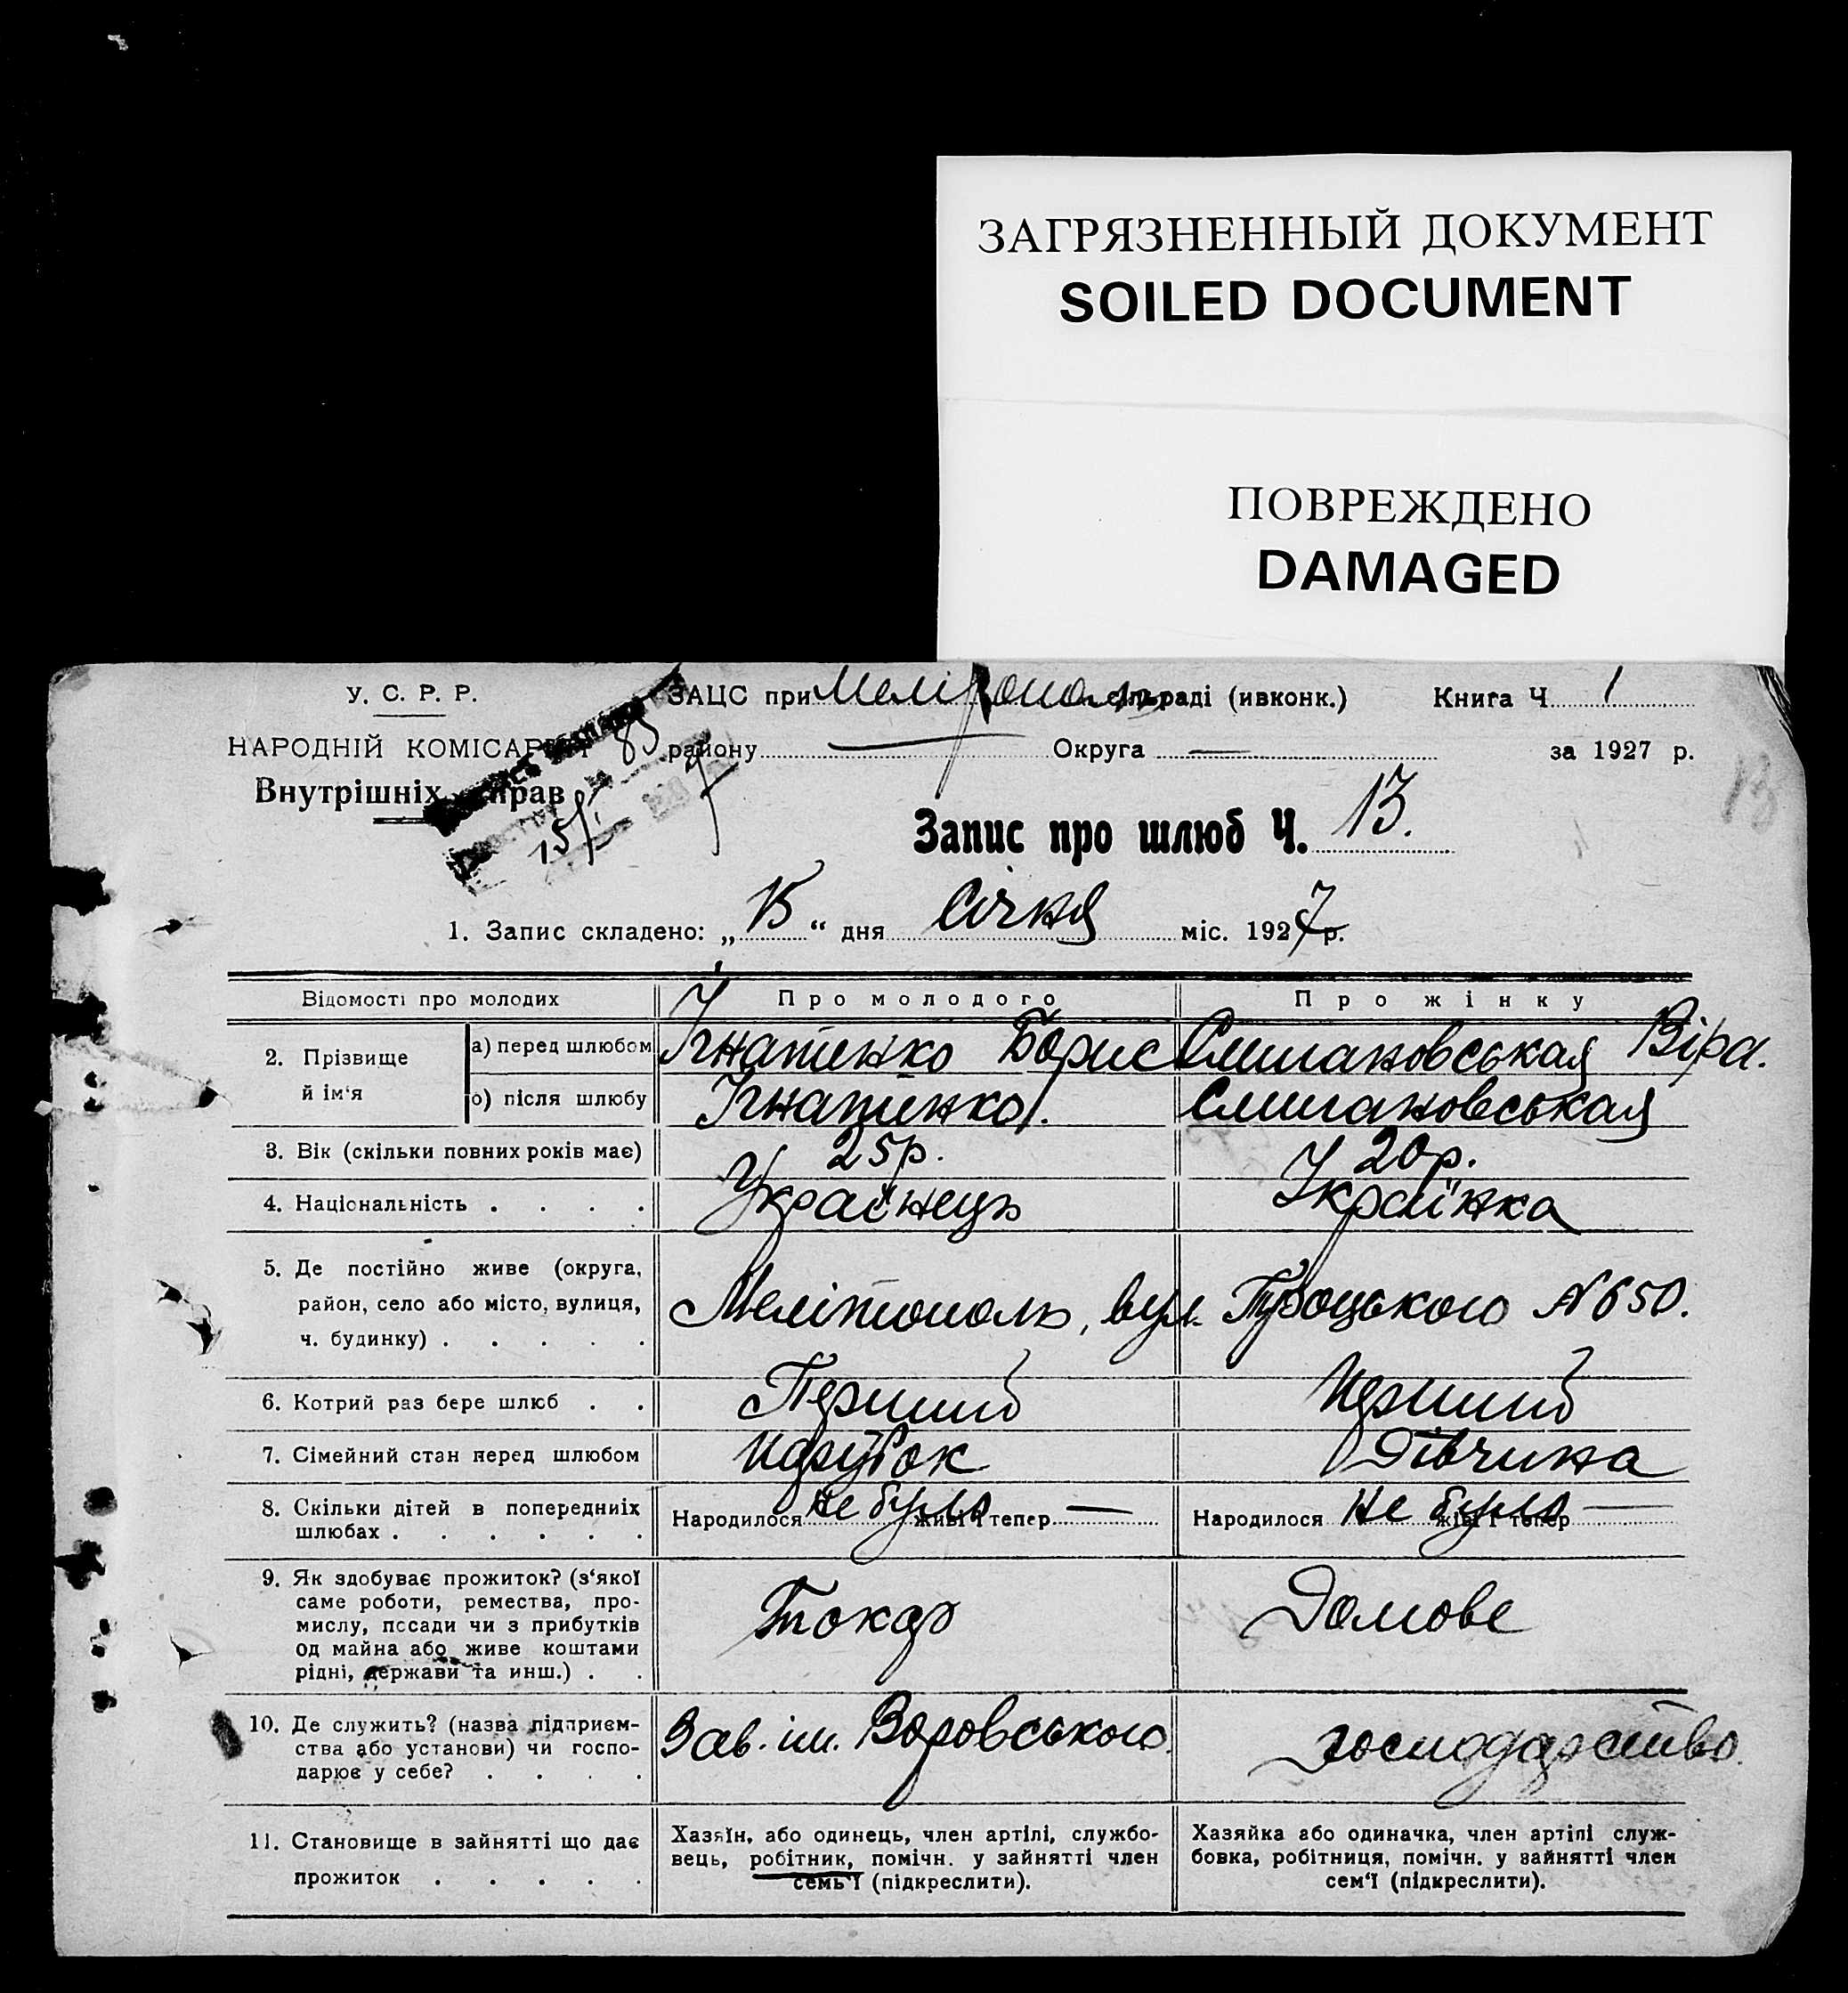 ЗАГРЯЗНЕННЫЙ ДОКУМЕНТ
SOILED DOCUMENT
ПОВРЕЖДЕНО
DAMAGED
У. С. Р. Р.
НАРОДНІЙ КОМІСАРІЯТ
Внутрішніх Справ
ЗАЦС при Мелітополь сільраді (ивконк.) Книга Ч 1
району — Округа — за 1927 р.
Запис про шлюб Ч. 13.
13
1. Запис складено: „15“ дня Січня міс. 1927 р.
Відомості про молодих Про молодого Про жінку
2. Прізвище й ім‘я
а) перед шлюбом Ігнатенко Борис Симановськая Віра.
б) після шлюбу Ігнатенко. Симановськая
3. Вік (скільки повних років має) 25р. 20р.
4. Національність . . . . Українець Українка
5. Де постійно живе (округа,
район, село або місто, вулиця,
ч. будинку) . . . . .
Мелітополь, вул. Троцького №650.
6. Котрий раз бере шлюб . . Перший Перший
7. Сімейний стан перед шлюбом Парубок Дівчина
8. Скільки дітей в попередниіх
шлюбах . . . . . .
Народилося не було живі і тепер — Народилося не було живі і тепер —
9. Як здобуває прожиток? (з‘якої
саме роботи, ремества, про-
мислу, посади чи з прибутків
од майна або живе коштами
рідні, держави та инш.) . .
Токар Домове
10. Де служить? (назва підприєм-
ства або установи) чи госпо-
дарює у себе? . . . .
Зав. ім. Воровського. господарство.
11. Становище в зайнятті що дає
прожиток . . . . .
Хазяїн, або одинець, член артілі, службо-
вець, робітник, помічн. у зайнятті член
семь‘ї (підкреслити).
Хазяйка або одиначка, член артілі служ-
бовка, робітниця, помічн. у зайнятті член
сем‘ї (підкреслити).